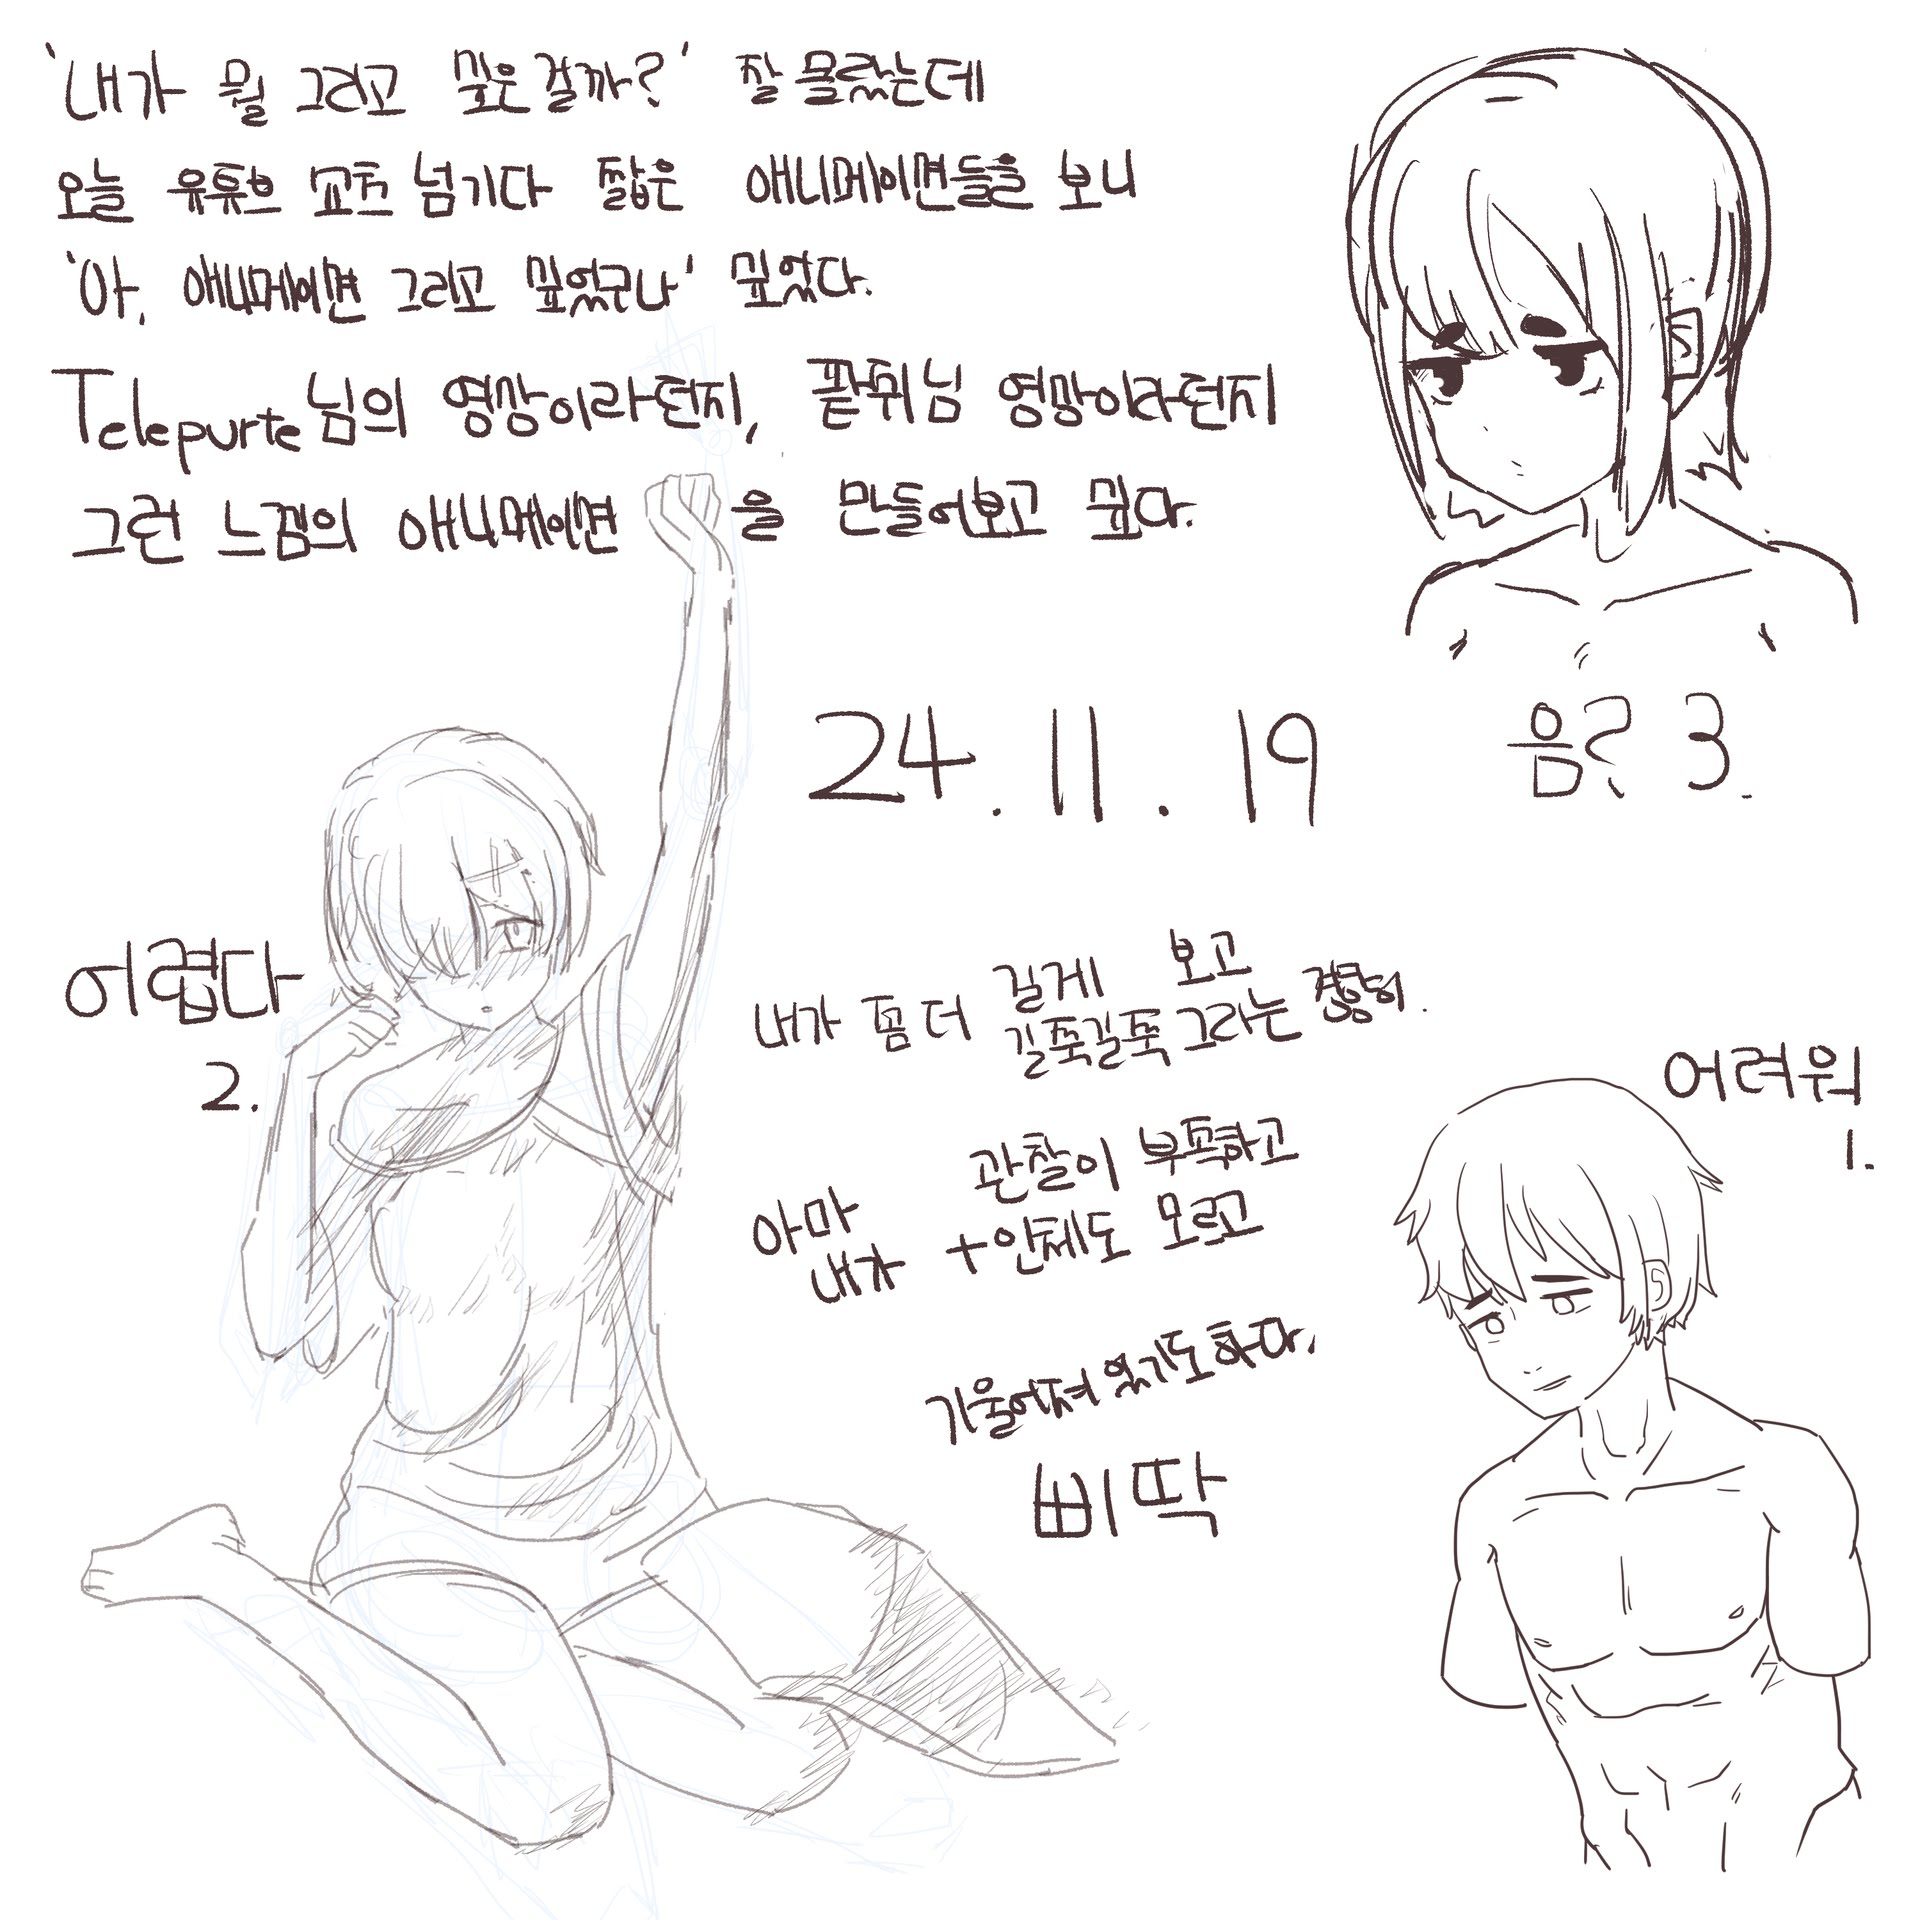 '내가 뭘 그리고 싶은걸까?' 잘 몰랐는데
오늘 유튜브 쇼츠 넘기다 짧은 애니메이션들을 보니
'아, 애니메이션 그리고 싶었구나' 싶었다.
Telepurte님의 영상이라던지, 팥쥐님 영상이라던지
그런 느낌의 애니메이션을 만들어보고 싶다.
24. 11. 19
음? 3.
어렵다
2.
내가 좀 더 길게 보고
길쭉길쭉 그리는
어려워
1.
아마 내가
관찰이 부족하고
+인체도 모르고
기울어져 있기도하다.
삐딱